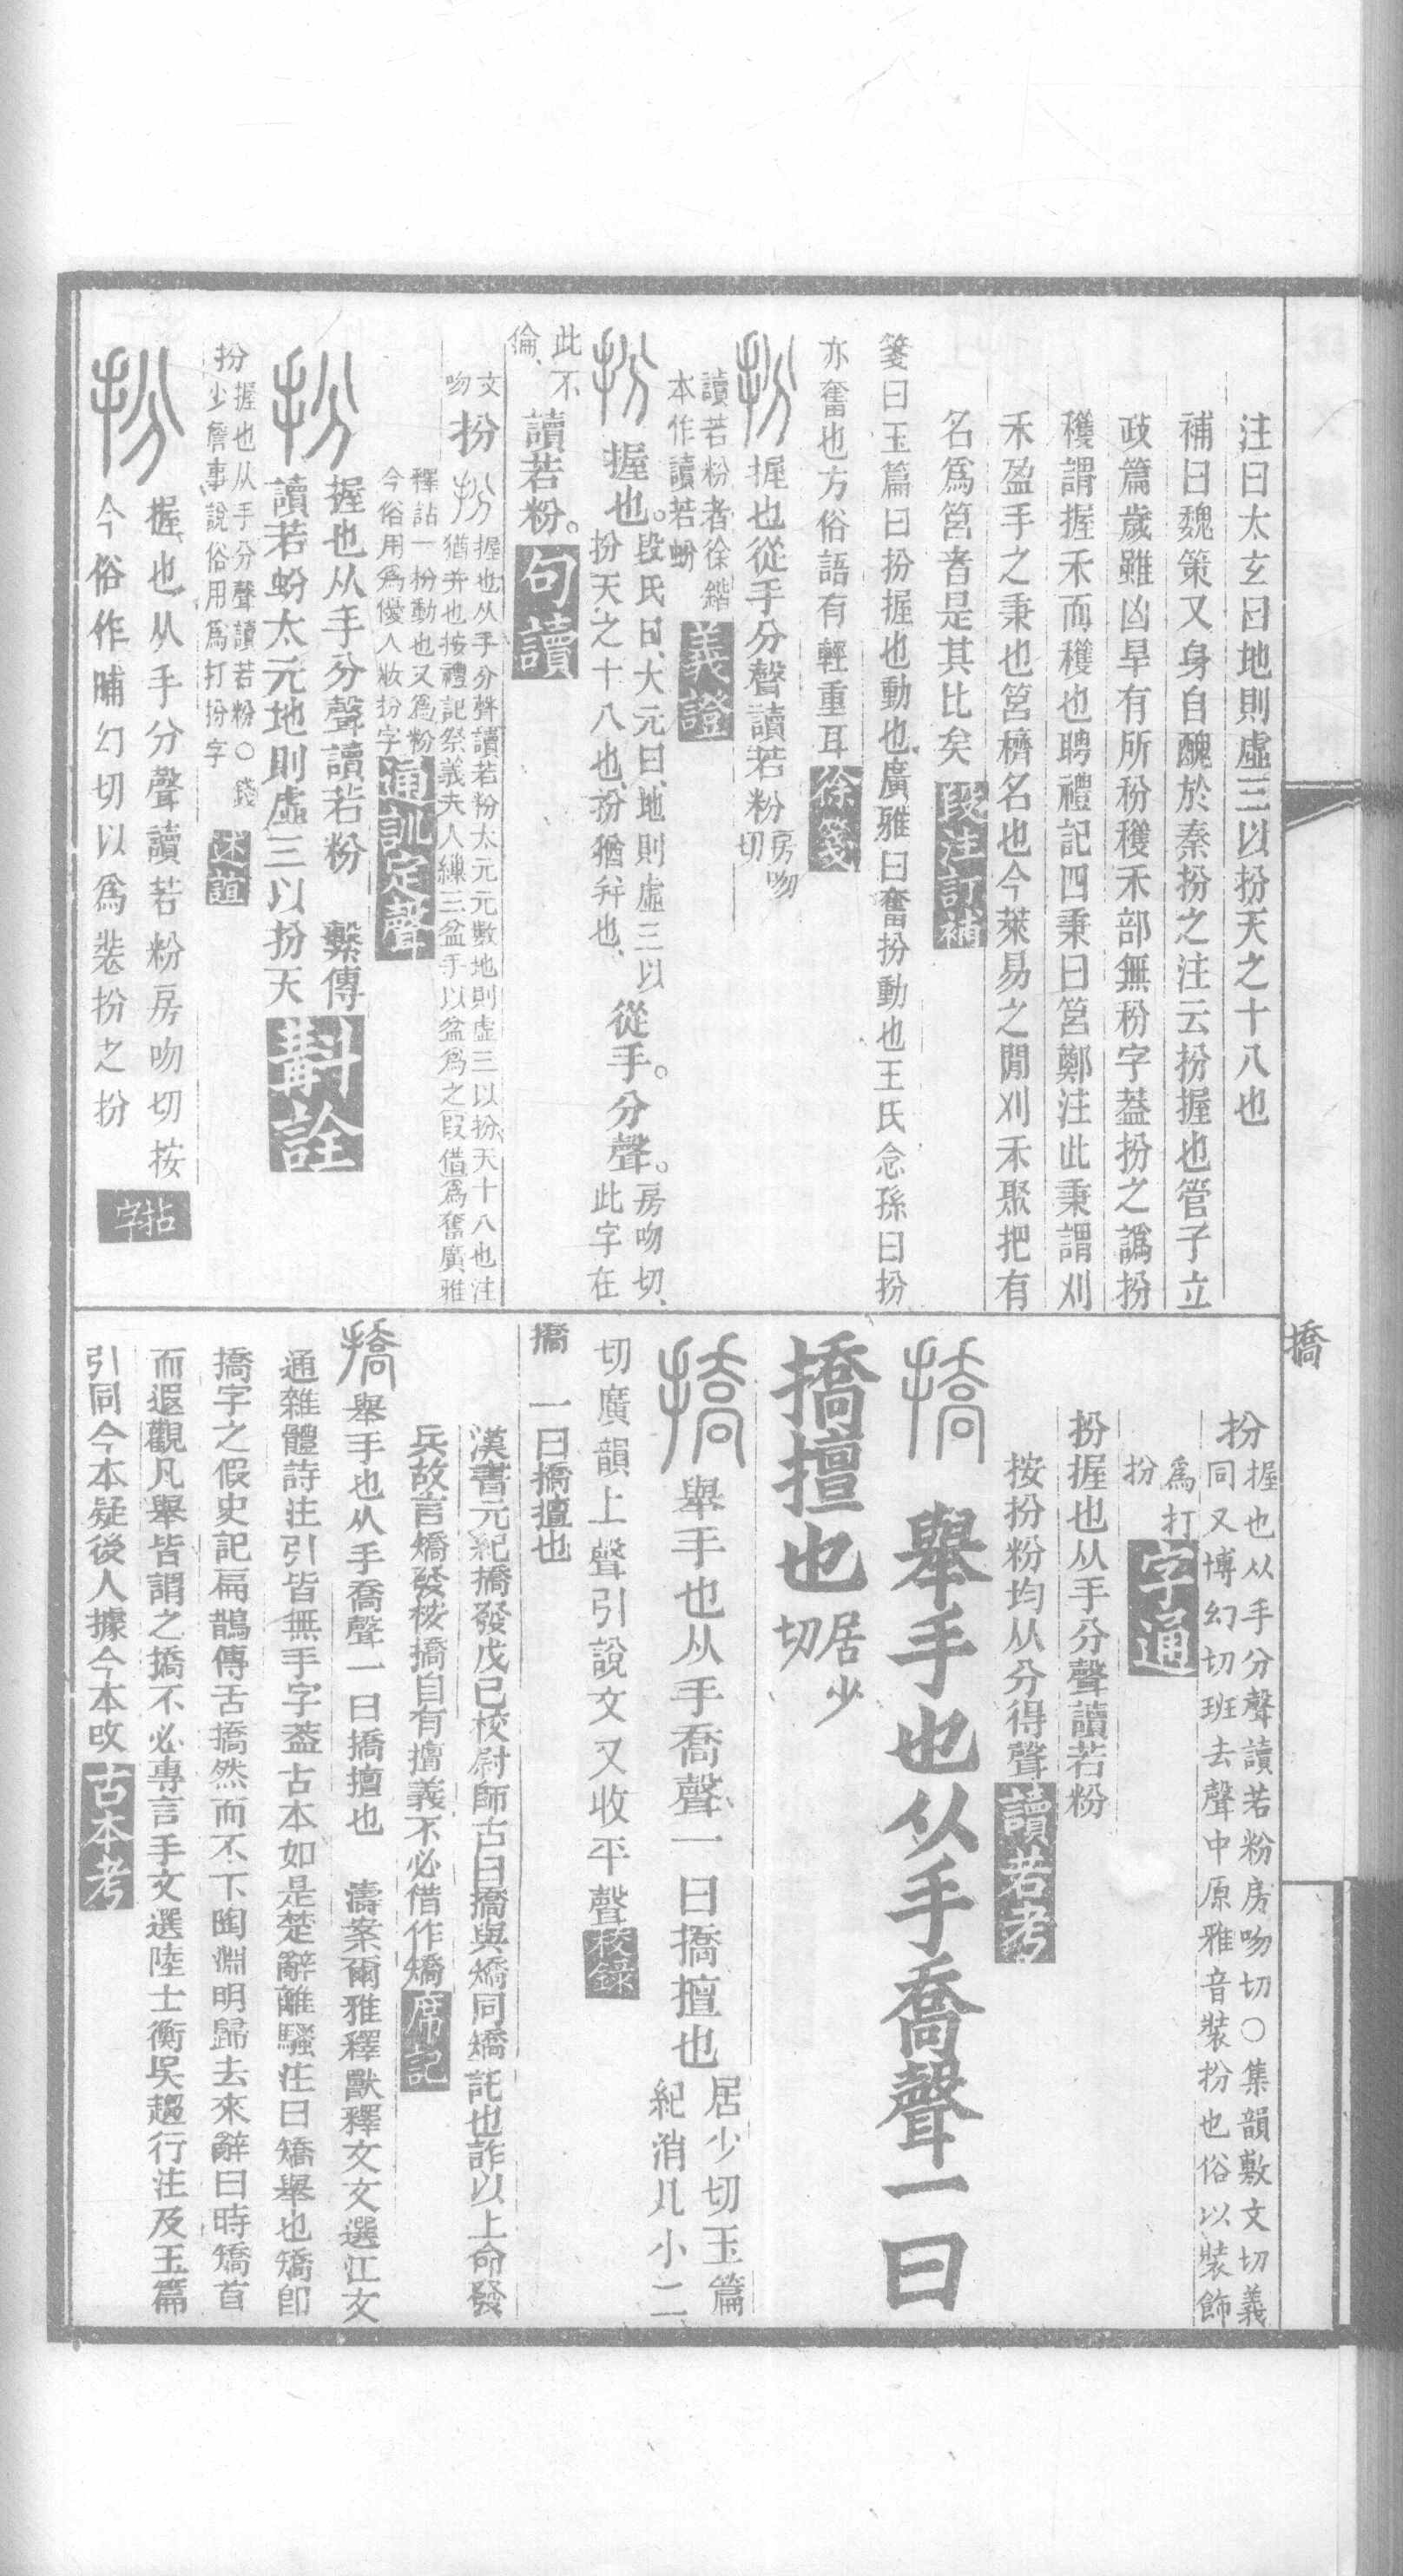 注曰太玄曰地則虛三以扮天之十八也
補曰魏策又身自醜於秦扮之注云扮握也管子立
政篇歲雖凶旱有所秎穫禾部無秎字葢扮之譌扮
穫謂握禾而穫也聘禮記四秉曰筥鄭注此秉謂刈
禾盈手之秉也筥穧名也今萊易之閒刈禾聚把有
名爲筥者是其比矣段注訂補
箋曰玉篇曰扮握也動也廣雅曰奮扮動也王氏念孫曰扮
亦奮也方俗語有輕重耳徐箋
扮握也從手分聲讀若粉房吻切
讀若粉者徐鍇
本作讀若蚡義證
扮握也。段氏曰、大元曰、地則虛三以
扮天之十八也、扮猶幷也、從手。分聲。房吻切、
此字在
此不
倫、讀若粉。句讀
文
吻扮扮握也从手分聲讀若粉太元元數地則虛三以扮天十八也注
猶并也按禮記祭義夫人繅三盆手以盆爲之叚借爲奮廣雅
釋詁一扮動也又爲粉
今俗用爲優人妝扮字通訓定聲
扮握也从手分聲讀若粉 繫傳
讀若蚡太元地則虛三以扮天斠詮
扮握也从手分聲讀若粉○錢
少詹事說俗用爲打扮字述誼
扮握也从手分聲讀若粉房吻切按
今俗作晡幻切以爲裝扮之扮拈字
撟
扮握也从手分聲讀若粉房吻切○集韻敷文切義
同又博幻切班去聲中原雅音裝扮也俗以裝飾
爲打
扮字通
扮握也从手分聲讀若粉
按扮粉均从分得聲讀若考
撟舉手也从手喬聲一曰
撟擅也居少切
撟舉手也从手喬聲一曰撟擅也居少切玉篇
紀消几小二
切廣韻上聲引說文又收平聲校錄
撟 一曰撟擅也
漢書元紀撟發戊己校尉師古曰撟與矯同矯託也詐以上命發
兵故言矯發桉撟自有擅義不必借作矯席記
撟舉手也从手喬聲一曰撟擅也 濤案爾雅釋獸釋文文選江文
通雜體詩注引皆無手字葢古本如是楚辭離騷注曰矯舉也矯卽
撟字之假史記扁鵲傳舌撟然而不下陶淵明歸去來辭曰時矯首
而遐觀凡舉皆謂之撟不必專言手文選陸士衡吳趨行注及玉篇
引同今本疑後人據今本改古本考